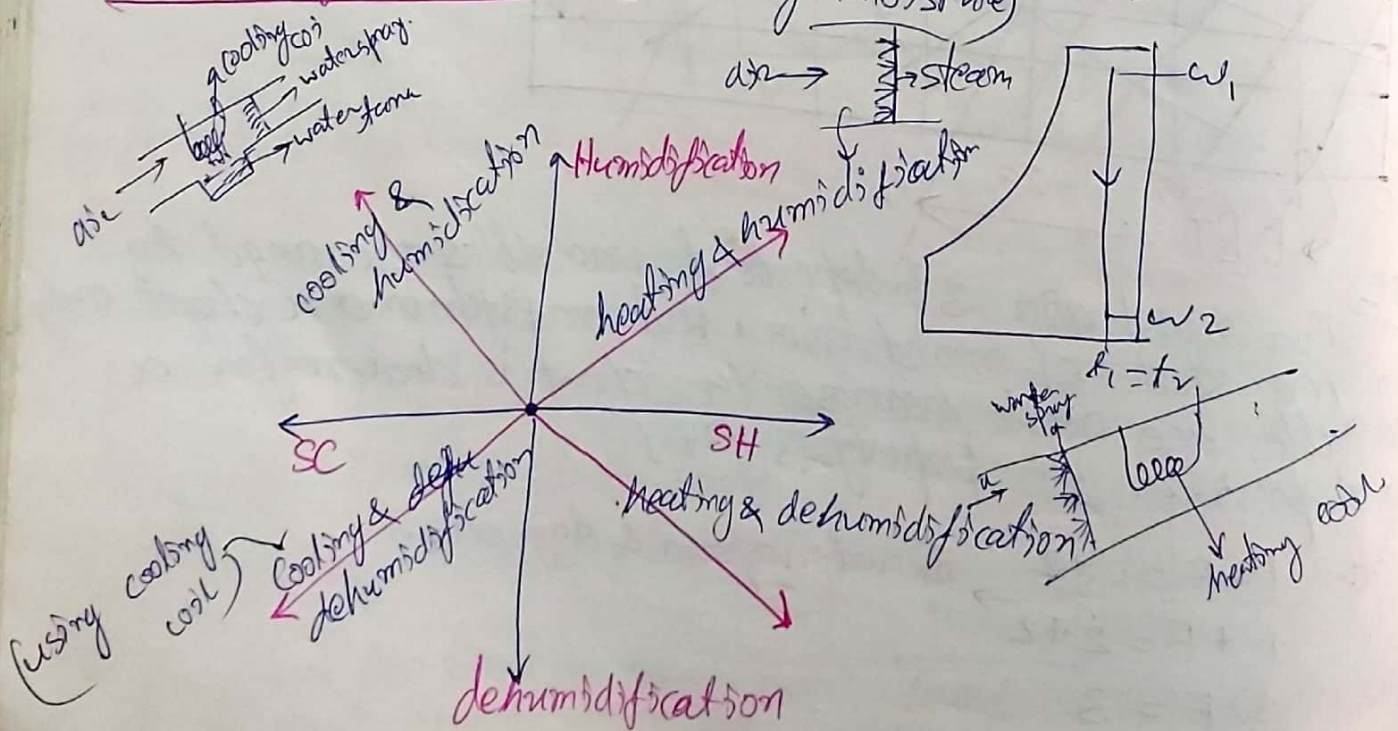 cooling coi
waterspray.
water
air
air
steam
ω1
ω2
t1 = t2
Humidification
cooling &
humidification
heating & humidification
SC
SH
Cooling & dehu
dehumidification
(using cooling
coil)
heating & dehumidification
water
spray
a
heating coil
dehumidification